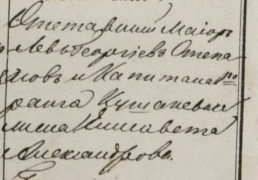 Отставний Маіоръ
Левъ Георгіевъ Степа
новъ и Капитана 1го
ранга
лица Елисавета
Александрова.